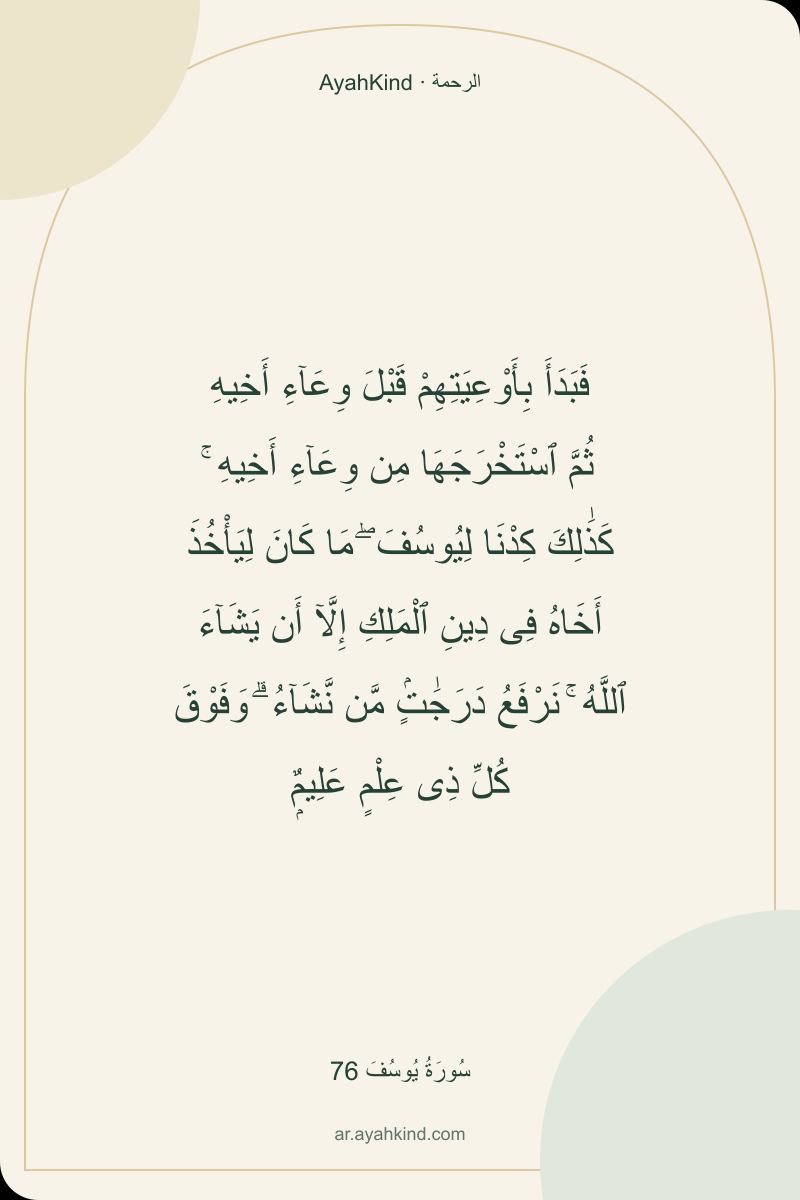 AyahKind · الرحمة
فَبَدَأَ بِأَوْعِيَتِهِمْ قَبْلَ وِعَآءِ أَخِيهِ
ثُمَّ ٱسْتَخْرَجَهَا مِن وِعَآءِ أَخِيهِ ۚ
كَذَٰلِكَ كِدْنَا لِيُوسُفَ ۖ مَا كَانَ لِيَأْخُذَ
أَخَاهُ فِى دِينِ ٱلْمَلِكِ إِلَّآ أَن يَشَآءَ
ٱللَّهُ ۚ نَرْفَعُ دَرَجَٰتٍۢ مَّن نَّشَآءُ ۗ وَفَوْقَ
كُلِّ ذِى عِلْمٍ عَلِيمٌۭ
سُورَةُ يُوسُفَ 76
ar.ayahkind.com